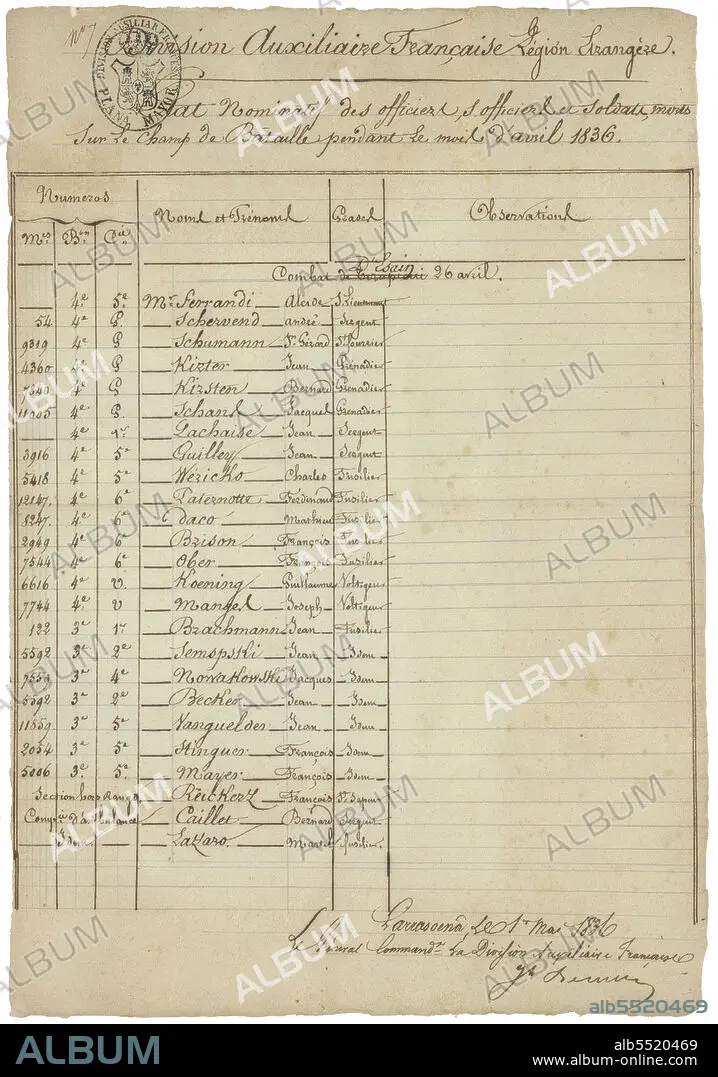 No 7
Division Auxiliaire Française Légion Etrangère.
DIVISION AUXILIAR FRANCESA
PLANA MAYOR
Etat Nominatif des officiers, s. officiers et soldats, morts
sur le champ de Bataille, pendant le mois d'avril 1836.
Numeros
Mles Bon Cie Noms et Prénoms Grades Observations
Combat de D'Esain 26 avril.
4e 5e Mr. Ferrandi Alcide S. Lieutenant
54 4e G. Schervend andré Sergent
9319 4e G Schumann Gérard Fourrier
4360 4e G Kizter Jean Grénadier
7640 4e G Kirsten Bernard Grenadier
11005 4e G. Schand Jacques Grenadier
4e 1re Lachaise Jean Sergent
3916 4e 5e Guilley Jean Sergent
5418 4e 5e Wézicko Charles Fusilier
12147. 4e 6e Paternotte Ferdinand Fusilier
8247. 4e 6e daco Mathieu Fusilier
2949 4e 6e Brison François Fusilier
7544 4e 6e Ober François Fusilier
6616 4e v. Koening Guillaume Voltigeur
7744 4e v Mangel Joseph Voltigeur
122 3e 1re Brachmann Jean Fusilier
5592 3e 2e Semopski Jean Idem
7559 3e 4e Nowakowski Jacques Idem
5592 3e 2e Becker Jean Idem
11859 3e 5e Vanguelder Jean Idem
2054 3e 5e Hinguer François Idem
5006 3e 5e Mayer François Idem
Section hors Rang Reickerz François Sapeur
Compie d'ambulance Caillet Bernard Sergent
Idem Lazaro. Martel fusilier
Larrasoena, le 1er Mai 1836
Le Général Commandt La Division Auxiliaire Française
ALBUM
alb5520469
ALBUM
alb5520469
www.album-online.com